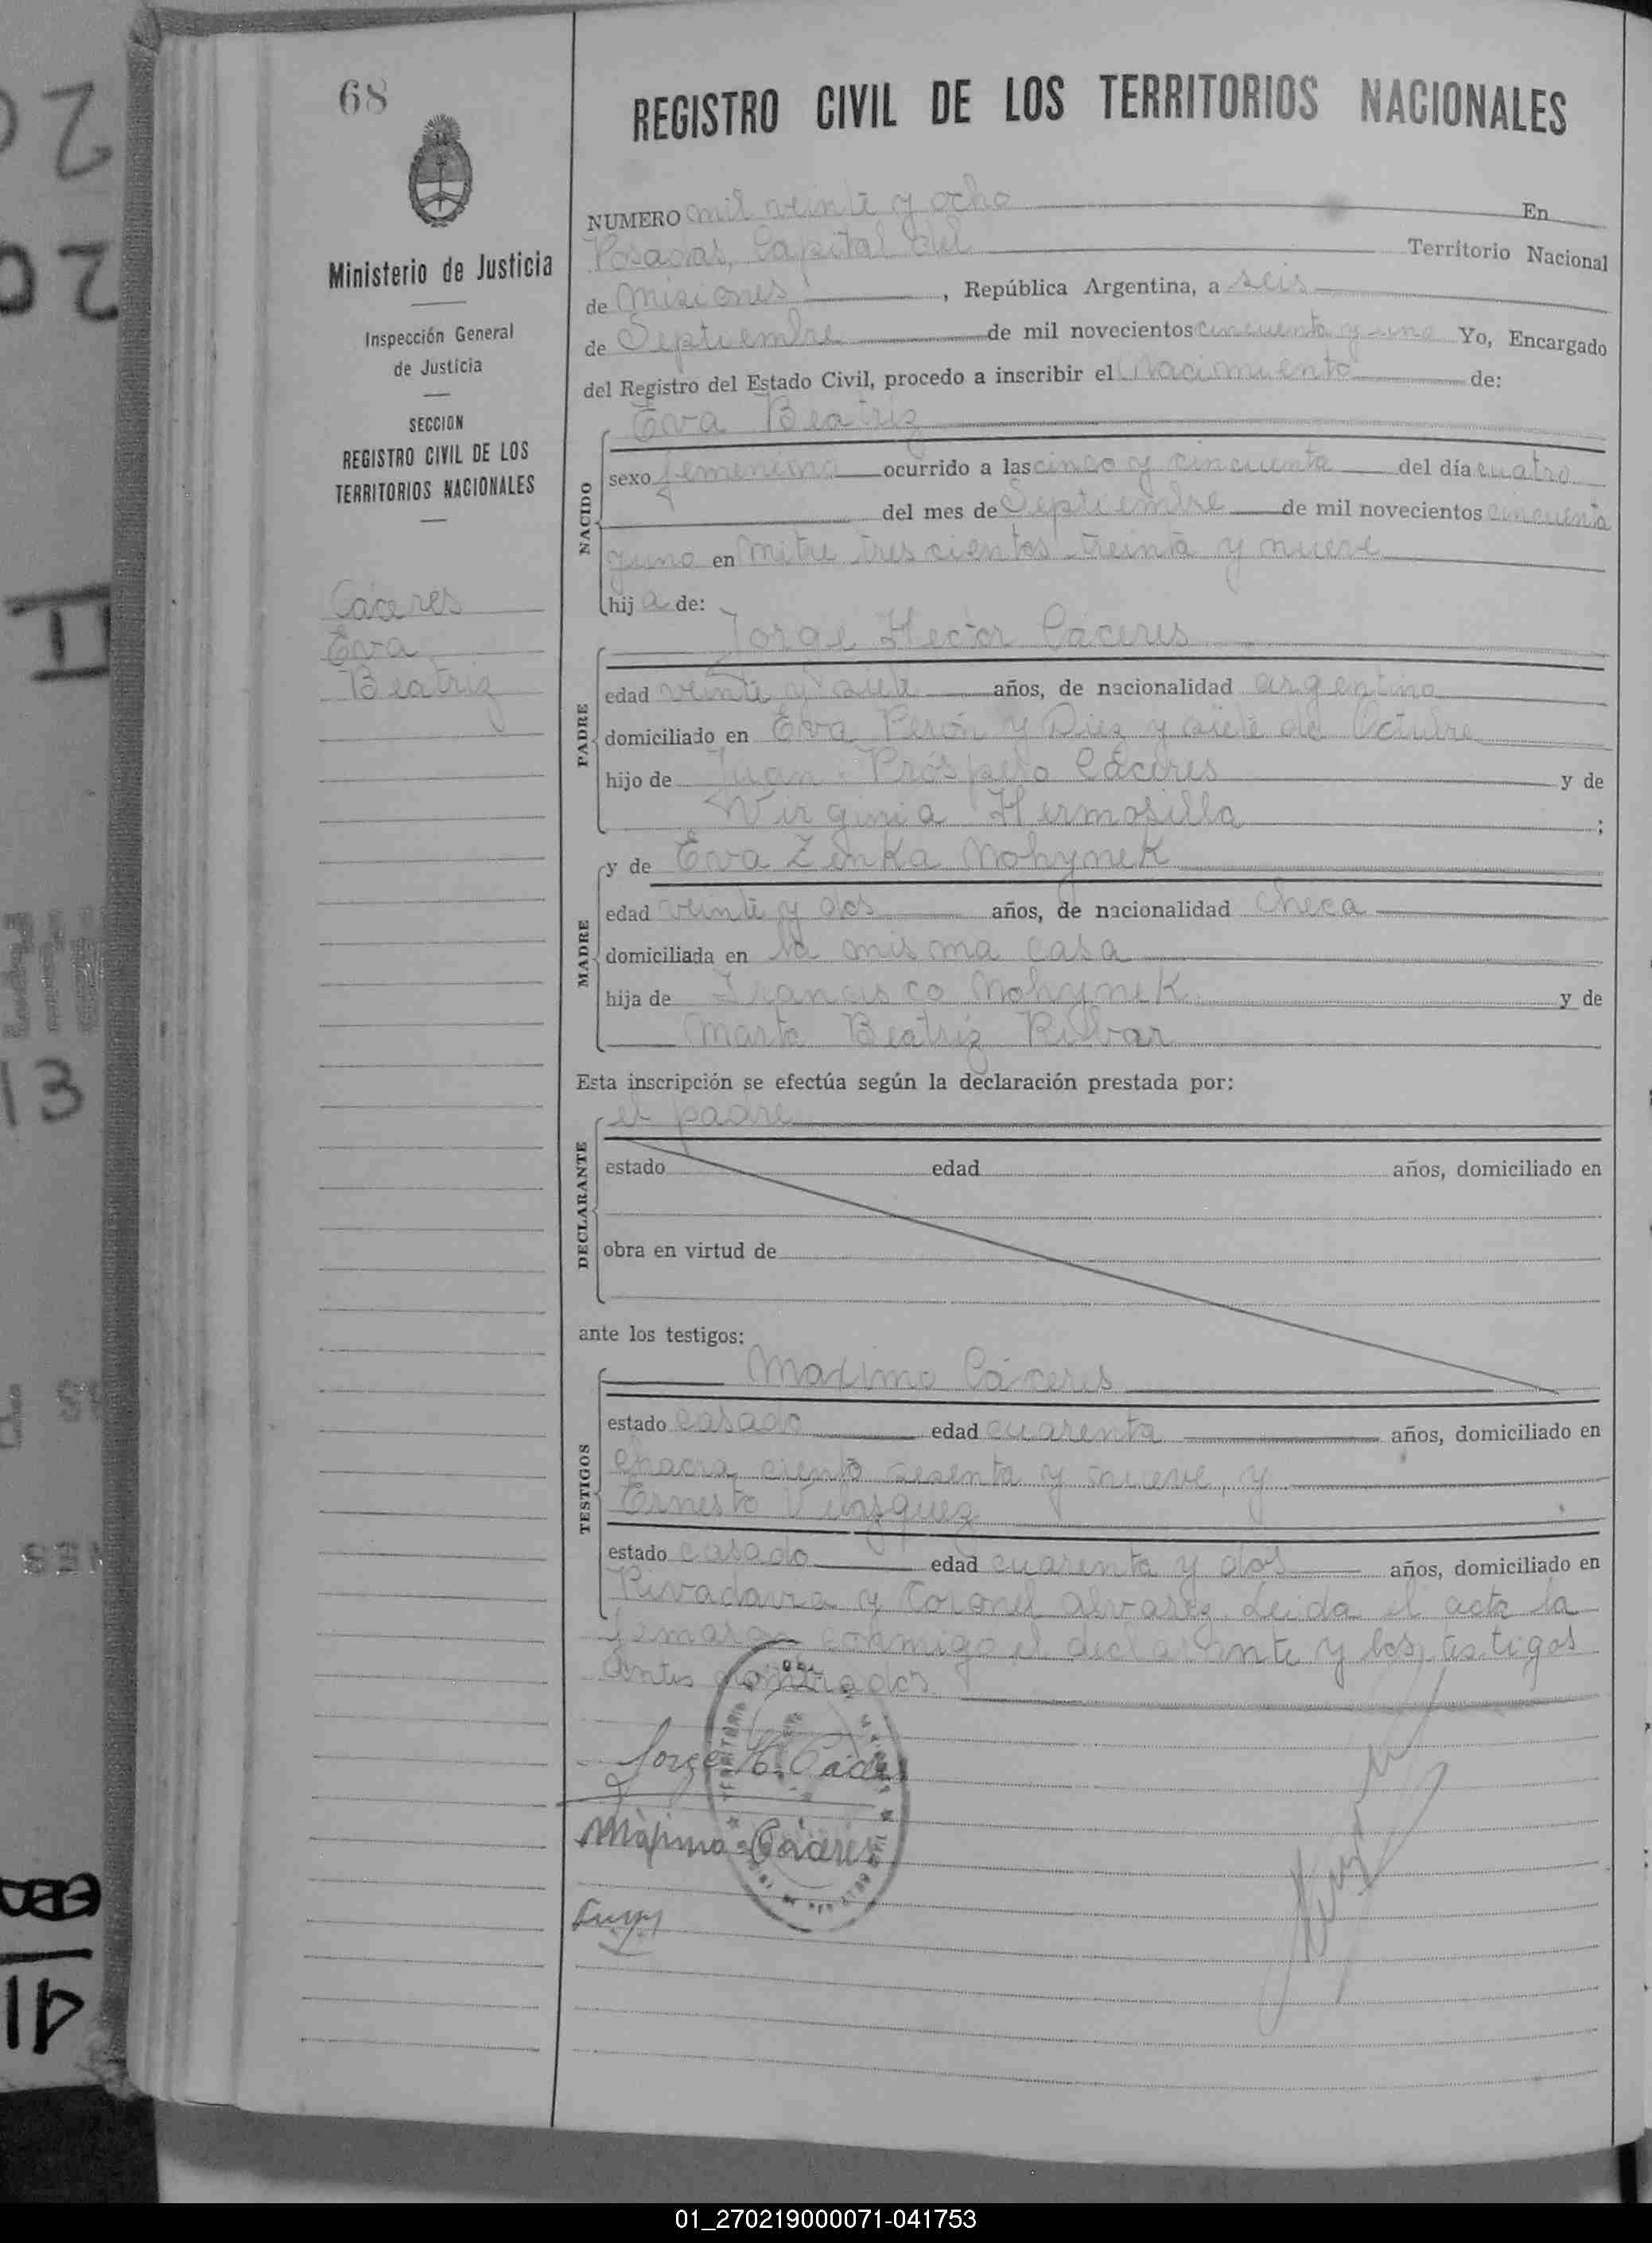 68
REGISTRO CIVIL DE LOS TERRITORIOS NACIONALES
Ministerio de Justicia
Inspección General
de Justicia
SECCION
REGISTRO CIVIL DE LOS
TERRITORIOS NACIONALES
Cáceres
Eva
Beatriz
NUMERO mil veinte y ocho En
Posadas, Capital del Territorio Nacional
de Misiones, República Argentina, a seis
de Septiembre de mil novecientos cincuenta y uno Yo, Encargado
del Registro del Estado Civil, procedo a inscribir el Nacimiento de:
NACIDO
Eva Beatriz
sexo femenino ocurrido a las cinco y cincuenta del día cuatro
del mes de Septiembre de mil novecientos cincuenta
y uno en Mitre trescientos treinta y nueve
hija de:
PADRE
Jorge Hector Cáceres
edad veinte y siete años, de nacionalidad argentino
domiciliado en Eva Perón y Diez y siete de Octubre
hijo de Juan Próspero Cáceres y de
Virginia Hermosilla ;
MADRE
y de Eva Zenka Nohynek
edad veinte y dos años, de nacionalidad checa
domiciliada en la misma casa
hija de Francisco Nohynek y de
Marta Beatriz
Esta inscripción se efectúa según la declaración prestada por:
DECLARANTE
el padre
estado edad años, domiciliado en
obra en virtud de
ante los testigos:
TESTIGOS
Maximo Cáceres
estado casado edad cuarenta años, domiciliado en
Chacra ciento sesenta y nueve, y
Ernesto Velasquez
estado casado edad cuarenta y dos años, domiciliado en
Rivadavia y Coronel Alvarez. Leida el acta la
firmaron conmigo el declarante y los testigos
antes nombrados.
Jorge H. Cáceres
Máximo Cáceres
01_270219000071-041753